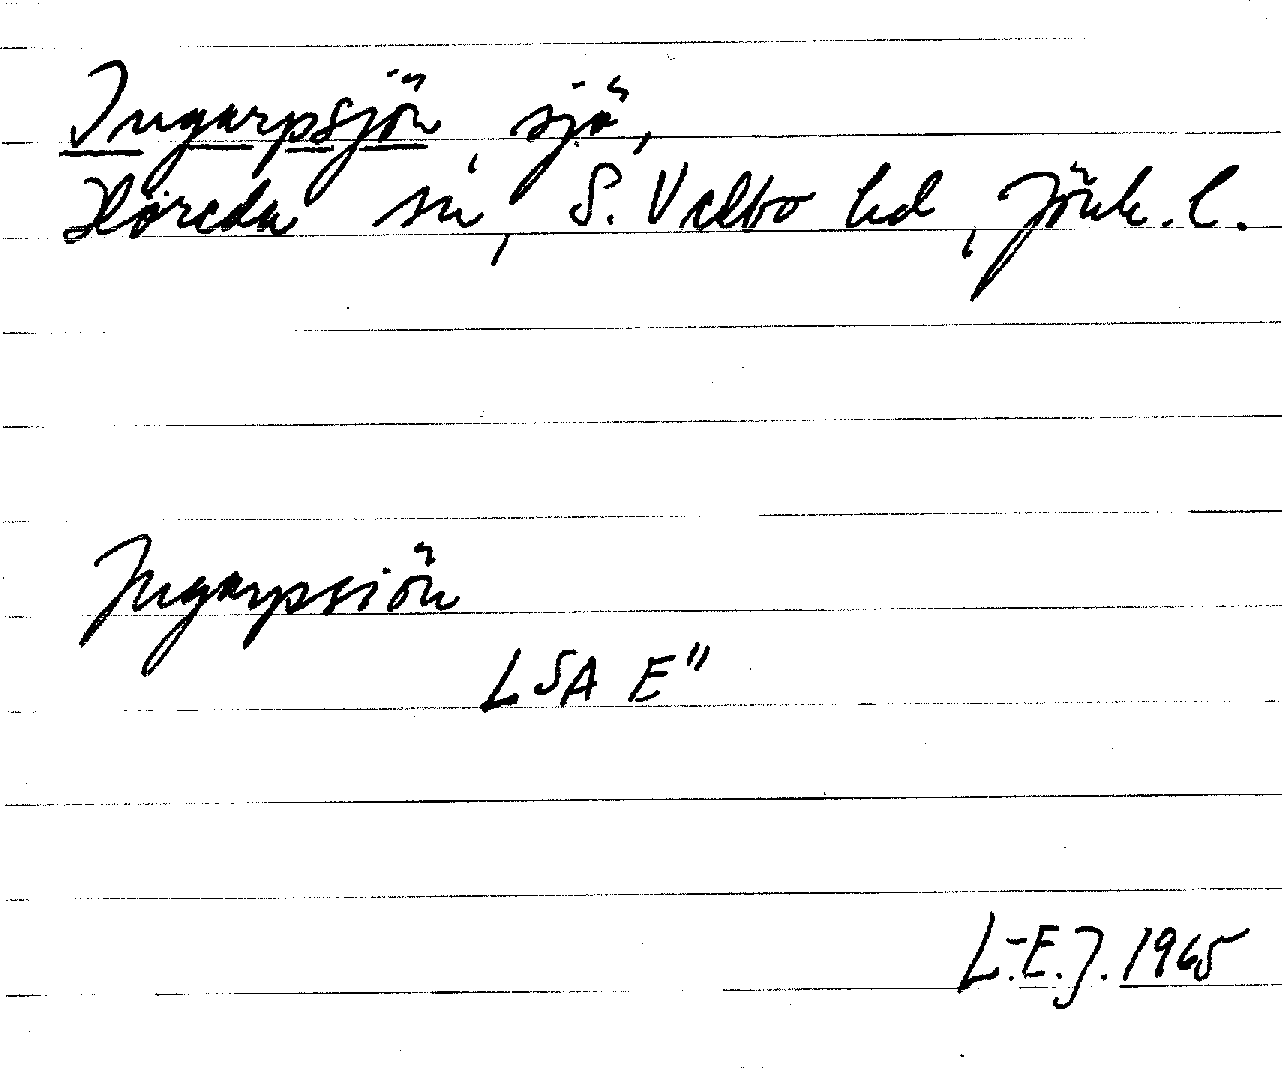 Ingarpsjön, sjö,
Höreda sn, S. Vedbo hd, Jönk. l.
Ingarpsiön
LSA E"
L.-E.J. 1965